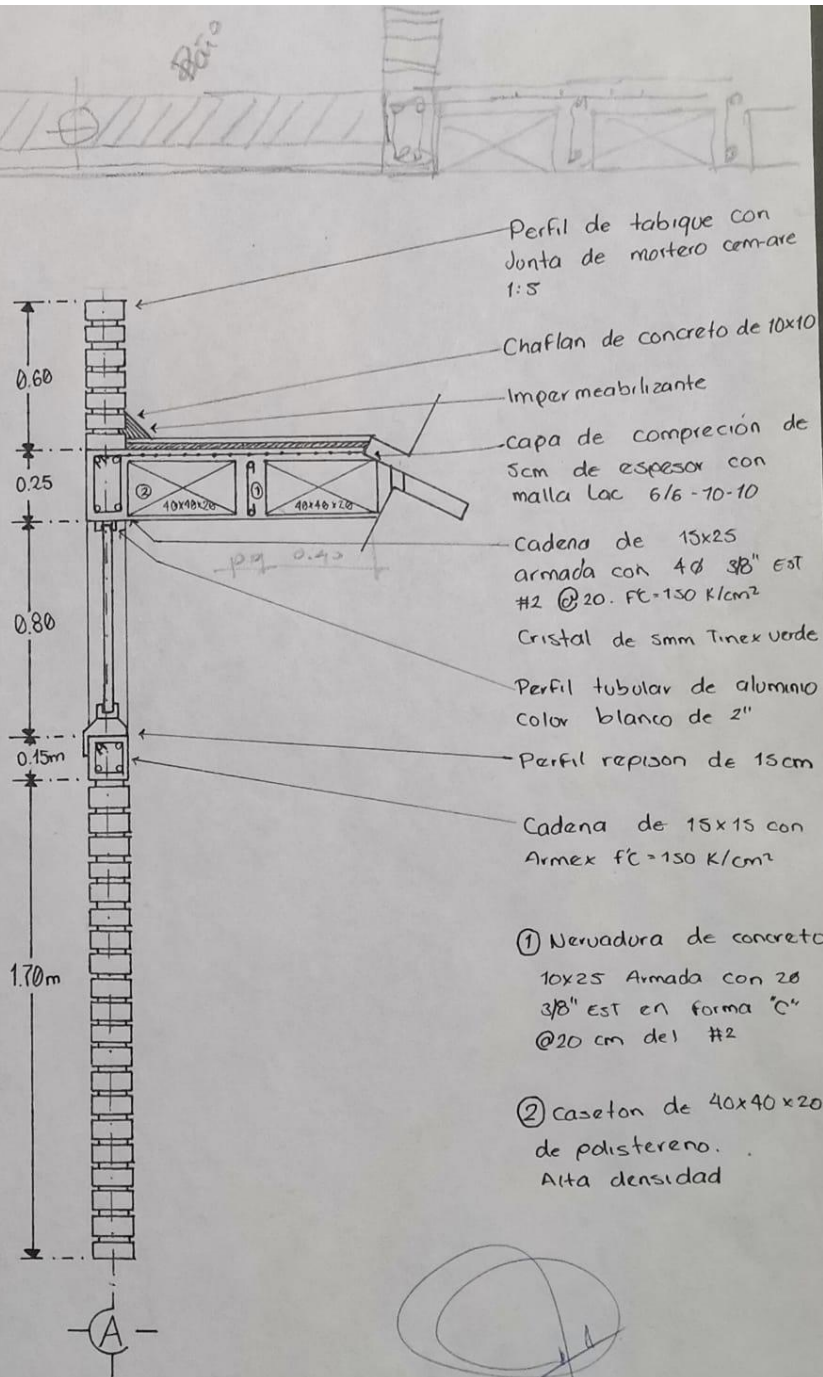 Baño
Perfil de tabique con
Junta de mortero cem-are
1:5
Chaflan de concreto de 10x10
Impermeabilizante
capa de compreción de
5cm de espesor con
malla Lac 6/6-10-10
Cadena de 15x25
armada con 4Ø 3/8" EST
#2 @ 20. F'C=150 K/cm²
Cristal de 5mm Tinex verde
Perfil tubular de aluminio
color blanco de 2"
Perfil repison de 15cm
Cadena de 15x15 con
Armex f'c=150 K/cm²
① Nervadura de concreto
10x25 Armada con 2Ø
3/8" EST en forma "C"
@20 cm del #2
② caseton de 40x40x20
de polistereno.
Alta densidad
0.60
0.25
0.80
0.15m
1.70m
② 40x40x20
① 40x40x20
A